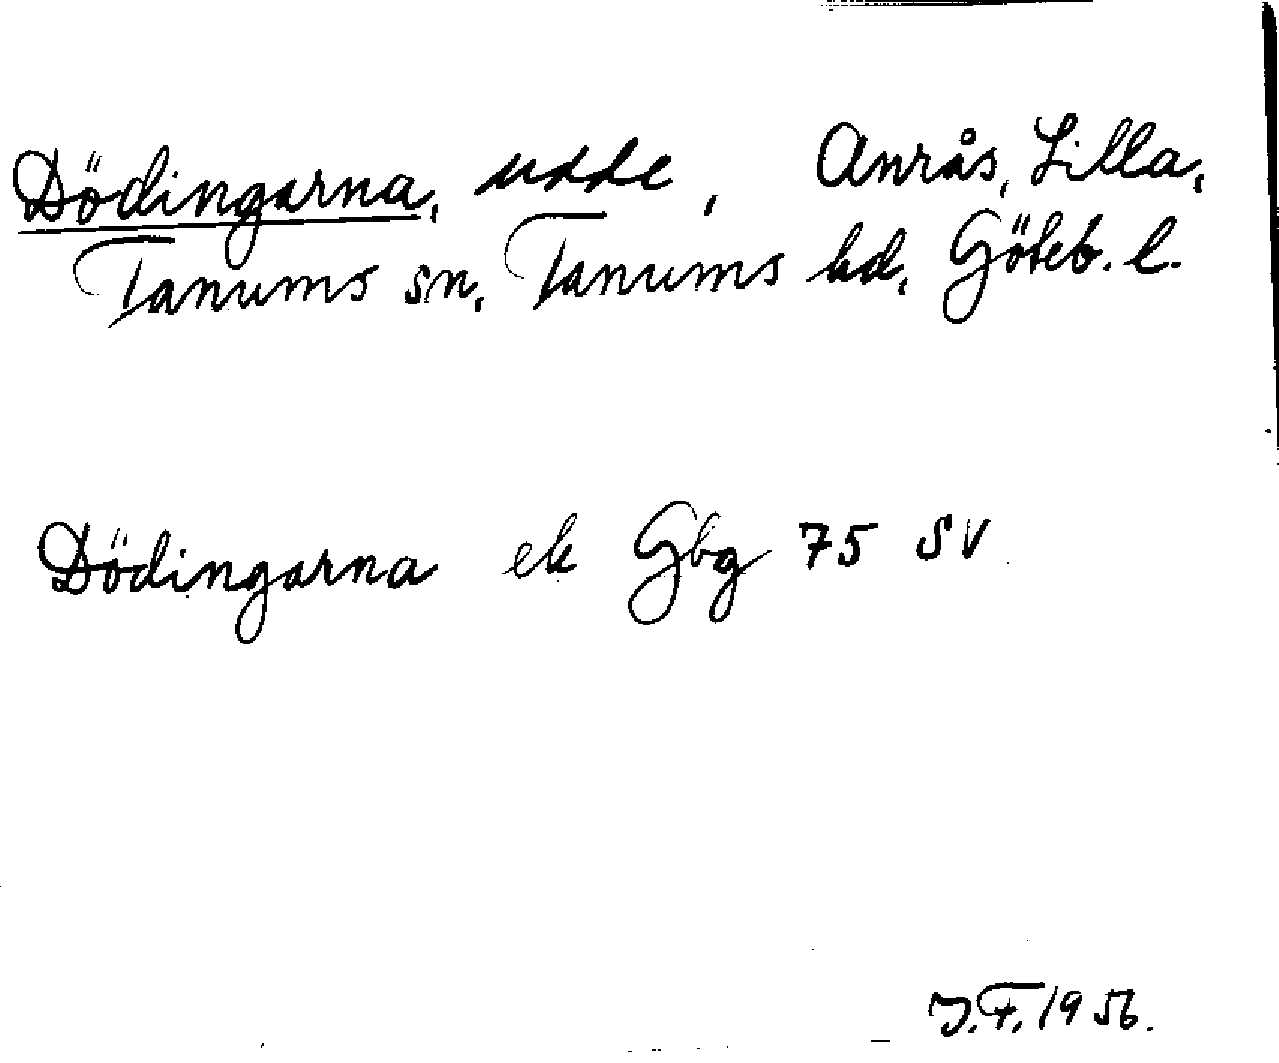 Dödingarna, udde, Anrås, Lilla,
Tanums sn, Tanums hd, Göteb. l.
Dödingarna ek Gbg 75 SV
J.F. 1956.